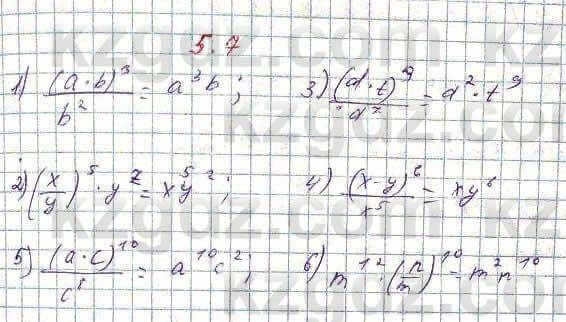 5.7
1) (a·b)³/b² = a³b; 3) (d·t)⁹/d⁷ = d²·t⁹
2) (x/y)⁵·y⁷ = x⁵y²; 4) (x-y)⁶/x⁵ = xy⁶
5) (a·c)¹⁰/c⁸ = a¹⁰c²; 6) m¹²·(n/m)¹⁰ = m²n¹⁰
kzgdz.com